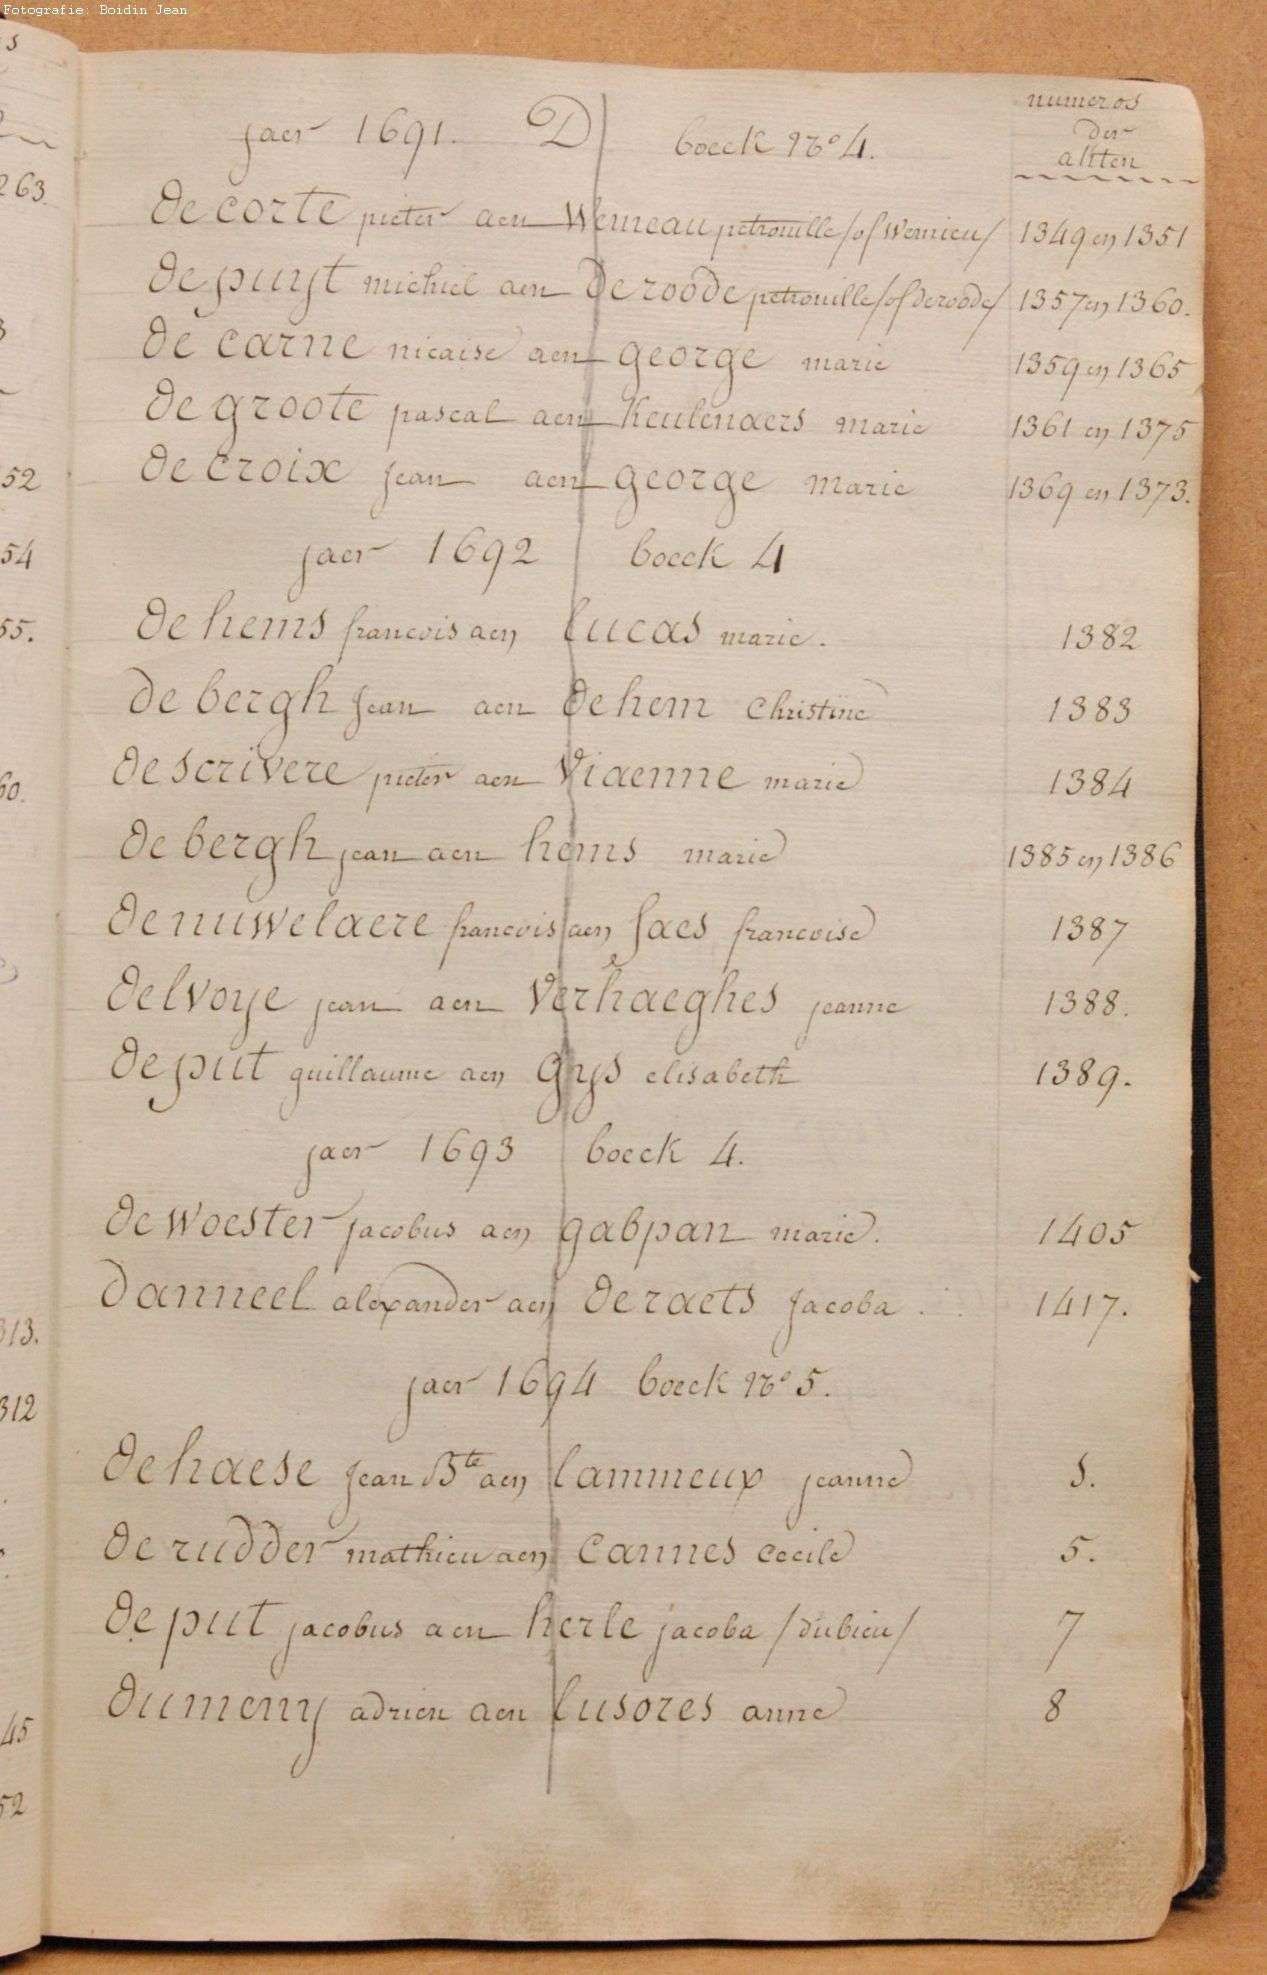 Fotografie: Boidin Jean
numeros
der
akten
jaer 1691. D boeck No 4.
de corte pieter aen Wemeau petronille /of Wemieu/ 1349 en 1351
de puijt michiel aen de roode petronille /of deroode/ 1357 en 1360.
de carne nicaise aen george marie 1359 en 1365
de groote pascal aen Keulenaers marie 1361 en 1375
de croix jean aen george marie 1369 en 1373.
jaer 1692 boeck 4
de hems francois aen lucas marie. 1382
de bergh jean aen de hem Christine 1383
de scrivere pieter aen Viaenne marie 1384
de bergh jean aen hems marie 1385 en 1386
de nuwelaere francois aen faes francoise 1387
delvoije jean aen Verhaeghes jeanne 1388.
de put guillaume aen gijs elisabeth 1389.
jaer 1693 boeck 4.
de woester jacobus aen gabpan marie. 1405
danneel alexander aen de raets jacoba. 1417.
jaer 1694 boeck No 5.
de haese jean Bte aen lammeux jeanne
de rudder mathieu aen cannes cecile 5.
de put jacobus aen herle jacoba /dubieu/ 7
dumeny adrien aen lusores anne 8
263.
52
54
55.
60.
313.
312
45
52